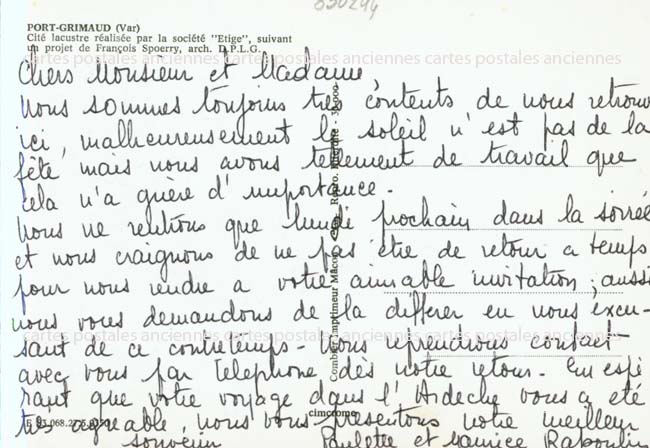 030244
PORT-GRIMAUD (Var)
Cité lacustre réalisée par la société "Etige", suivant
un projet de François Spoerry, arch. D.P.L.G.
Chers Monsieur et Madame,
Nous sommes toujours très contents de nous retrouv
ici, malheureusement le soleil n'est pas de la
fête mais nous avons tellement de travail que
cela n'a guère d'importance.
Nous ne rentrons que lundi prochain dans la soirée
et nous craignons de ne pas être de retour à temps
pour nous rendre a votre aimable invitation; aussi
nous vous demandons de la différer en nous excu-
sant de ce contretemps - Nous reprendrons contact
avec vous par téléphone dès notre retour. En espé
rant que votre voyage dans l'Ardèche vous a été
très agréable, nous vous présentons notre meilleur
souvenir
Paulette et Maurice
cartes postales anciennes cartes postales anciennes cartes postales anciennes
cartes postales anciennes cartes postales anciennes cartes postales anciennes
Combier Imprimeur Mâcon
cimcrome